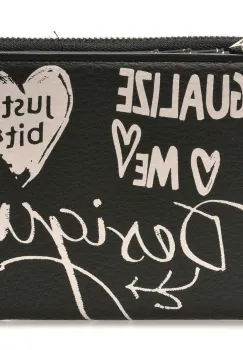 just
bit
UALIZE
ME
Desigu